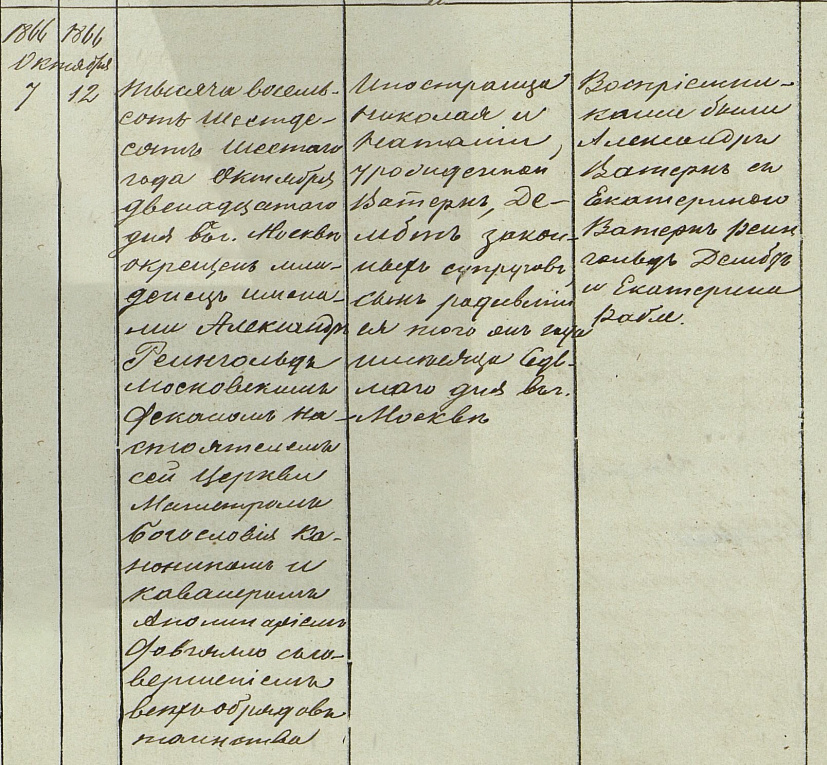 1866 1866
Октября
7 12
Тысяча восемь-
сотъ шестьде-
сятъ шестаго
года Октября
двенадцатаго
дня въ г. Москвѣ
окрещенъ мла-
денецъ имена-
ми Александръ
Реингольдъ
Московскимъ
Деканомъ На-
стоятелемъ
сей Церкви
Магистромъ
Богословія Ка-
ноникомъ и
кавалеромъ
Аполинаріемъ
Довгялло съ со-
вершеніемъ
всѣхъ обрядовъ
таинства
Иностранца
Николая и
Наталіи,
урожденной
Дембтъ закон-
ныхъ супруговъ
сынъ родившій
ся того же года
и мѣсяца Седь-
маго дня въ г.
Москвѣ
Воспріемни-
ками были
Александръ
Ватернъ съ
Екатериною
Ватернъ Реин
гольдъ Дембтъ
и Екатерина
Рабе.